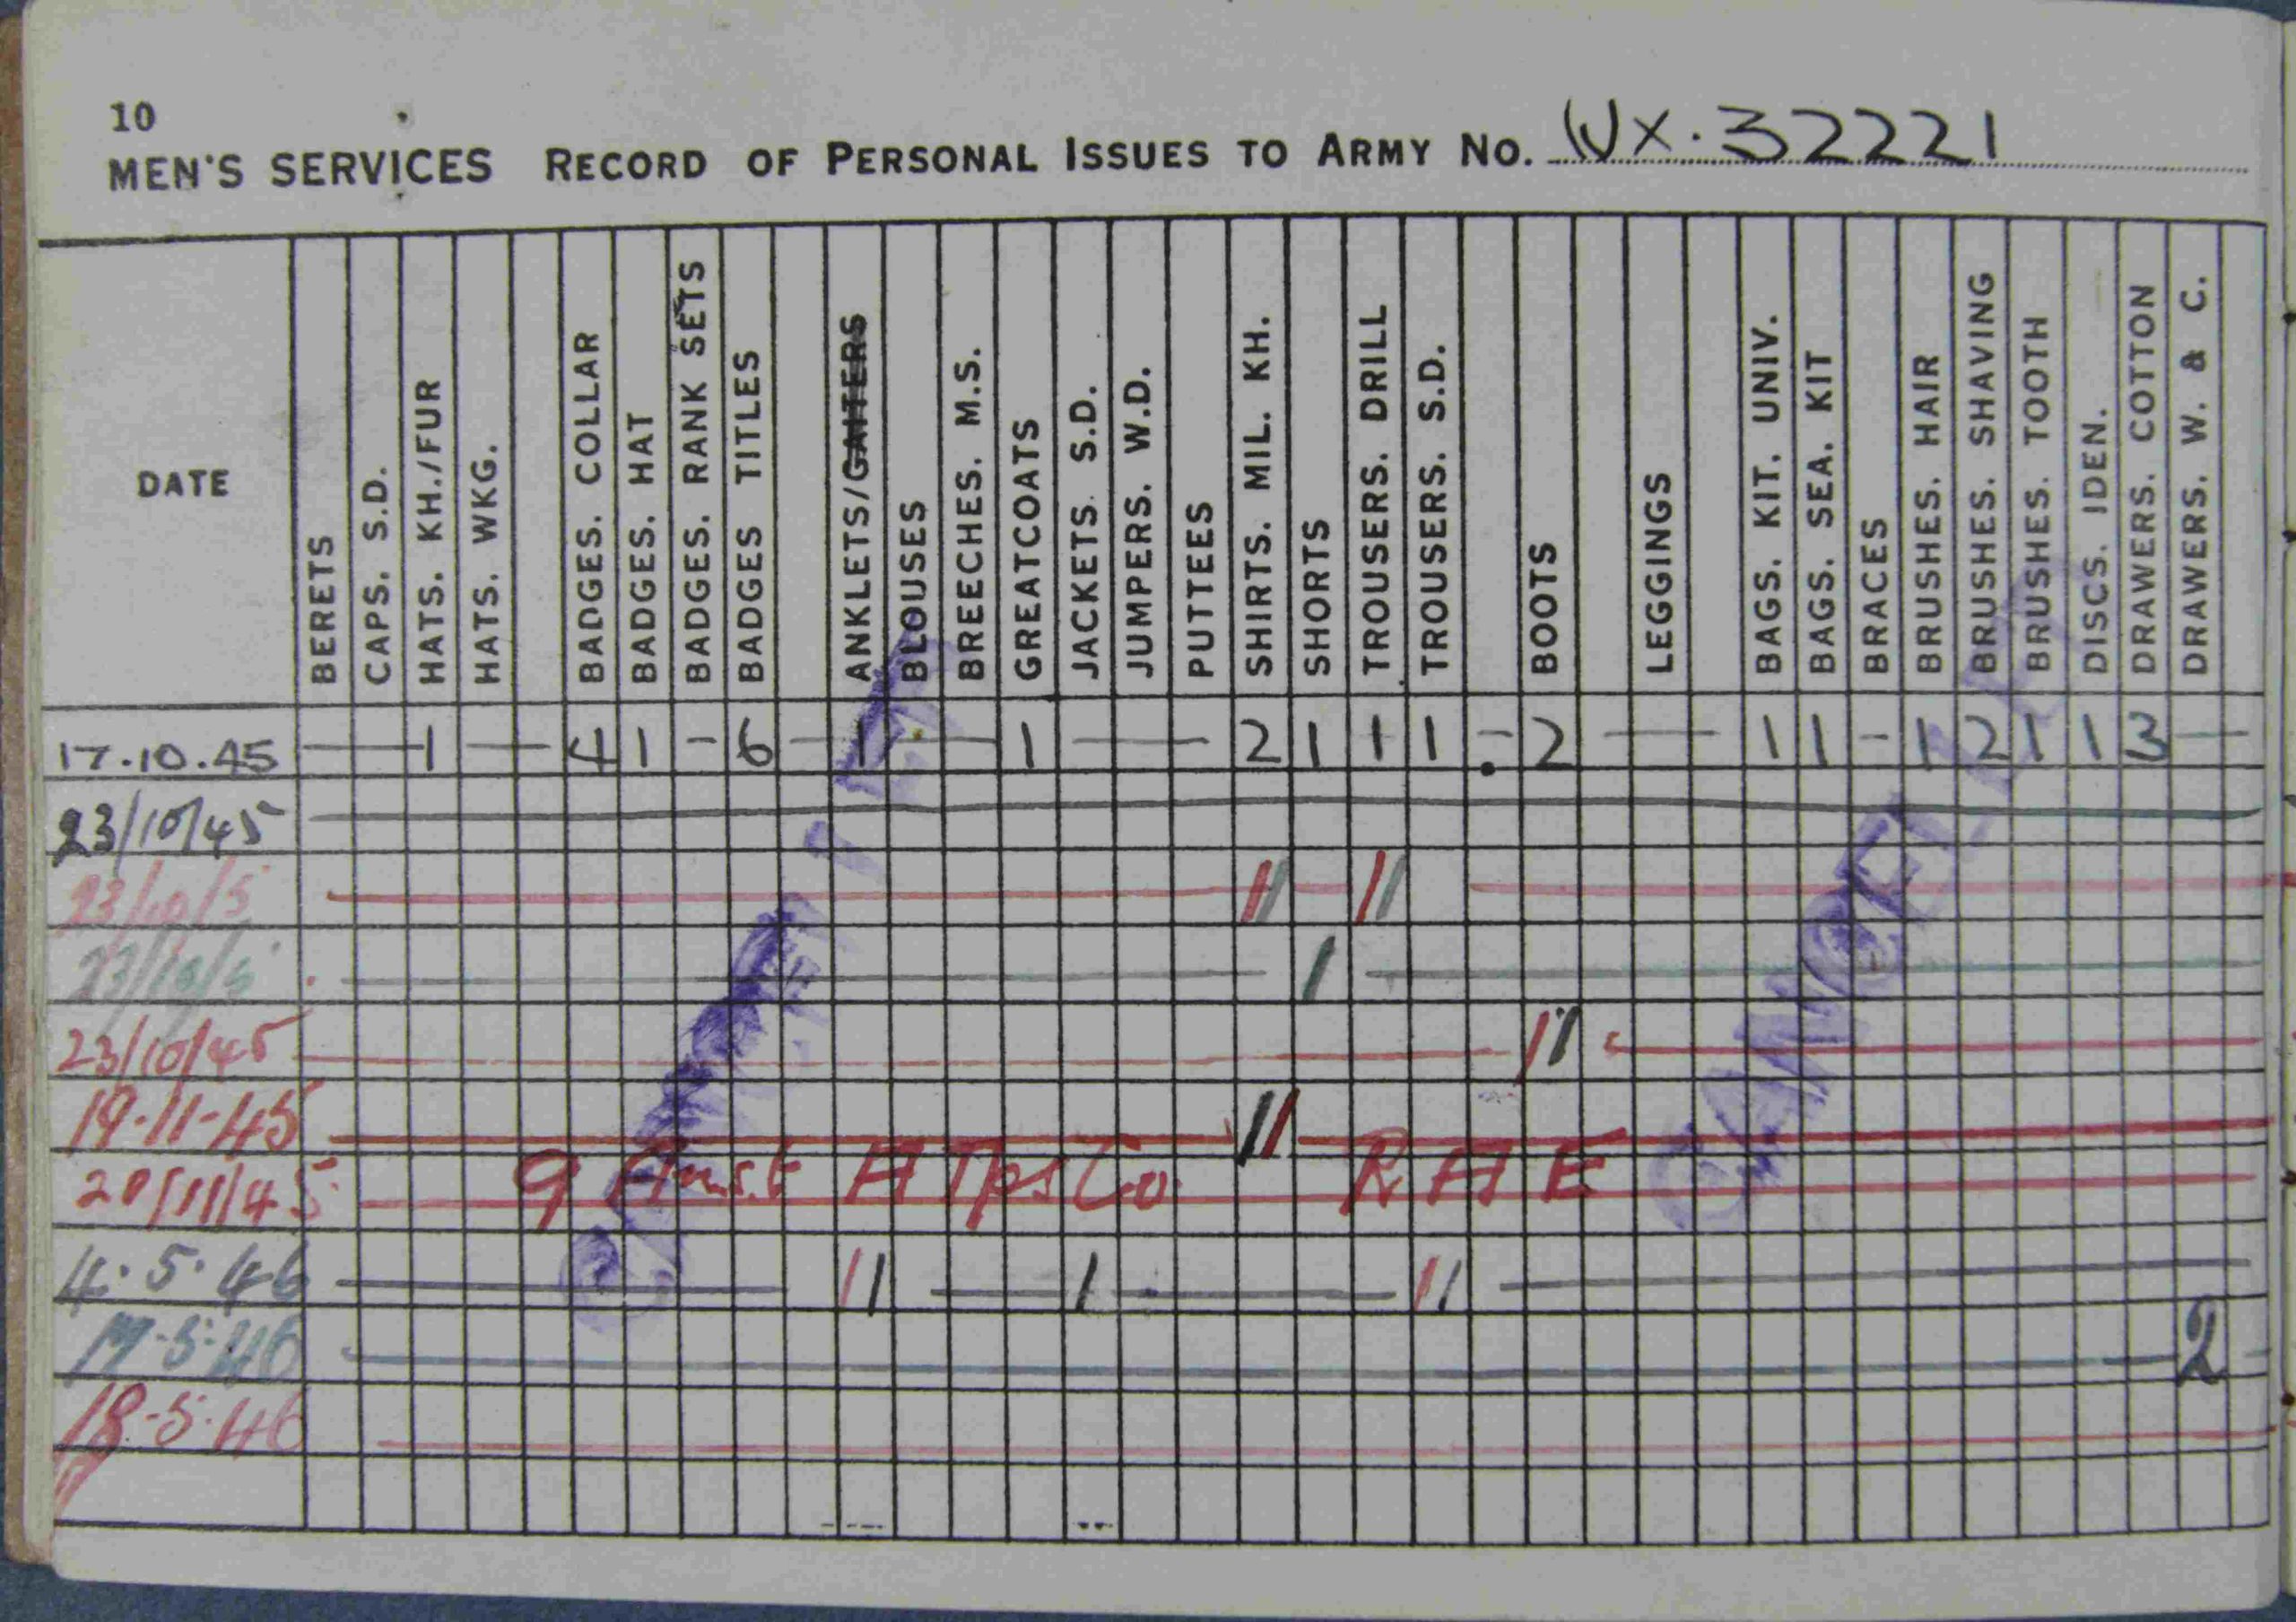 10
MEN'S SERVICES RECORD OF PERSONAL ISSUES TO ARMY NO. WX.32221
DATE
BERETS
CAPS. S.D.
HATS. KH./FUR
HATS. WKG.
BADGES. COLLAR
BADGES. HAT
BADGES. RANK SETS
BADGES TITLES
ANKLETS/GAITERS
BLOUSES
BREECHES. M.S.
GREATCOATS
JACKETS. S.D.
JUMPERS. W.D.
PUTTEES
SHIRTS. MIL. KH.
SHORTS
TROUSERS. DRILL
TROUSERS. S.D.
BOOTS
LEGGINGS
BAGS. KIT. UNIV.
BAGS. SEA. KIT
BRACES
BRUSHES. HAIR
BRUSHES. SHAVING
BRUSHES. TOOTH
DISCS. IDEN.
DRAWERS. COTTON
DRAWERS. W. & C.
17.10.45 — 1 — 4 1 - 6 — 1 — 1 — 2 1 1 1 - 2 — 1 1 - 1 2 1 1 3 —
23/10/45
23/10/5 — 1 1 — 1 1 —
23/10/5 — 1 —
23/10/45 — 1 1 —
19-11-45 — 1 1 —
20/11/45 9 Aust A Tps Co R A E
4.5.46 — 1 1 — 1 — 1 1 —
17-5-46 — 2 -
18-5-46